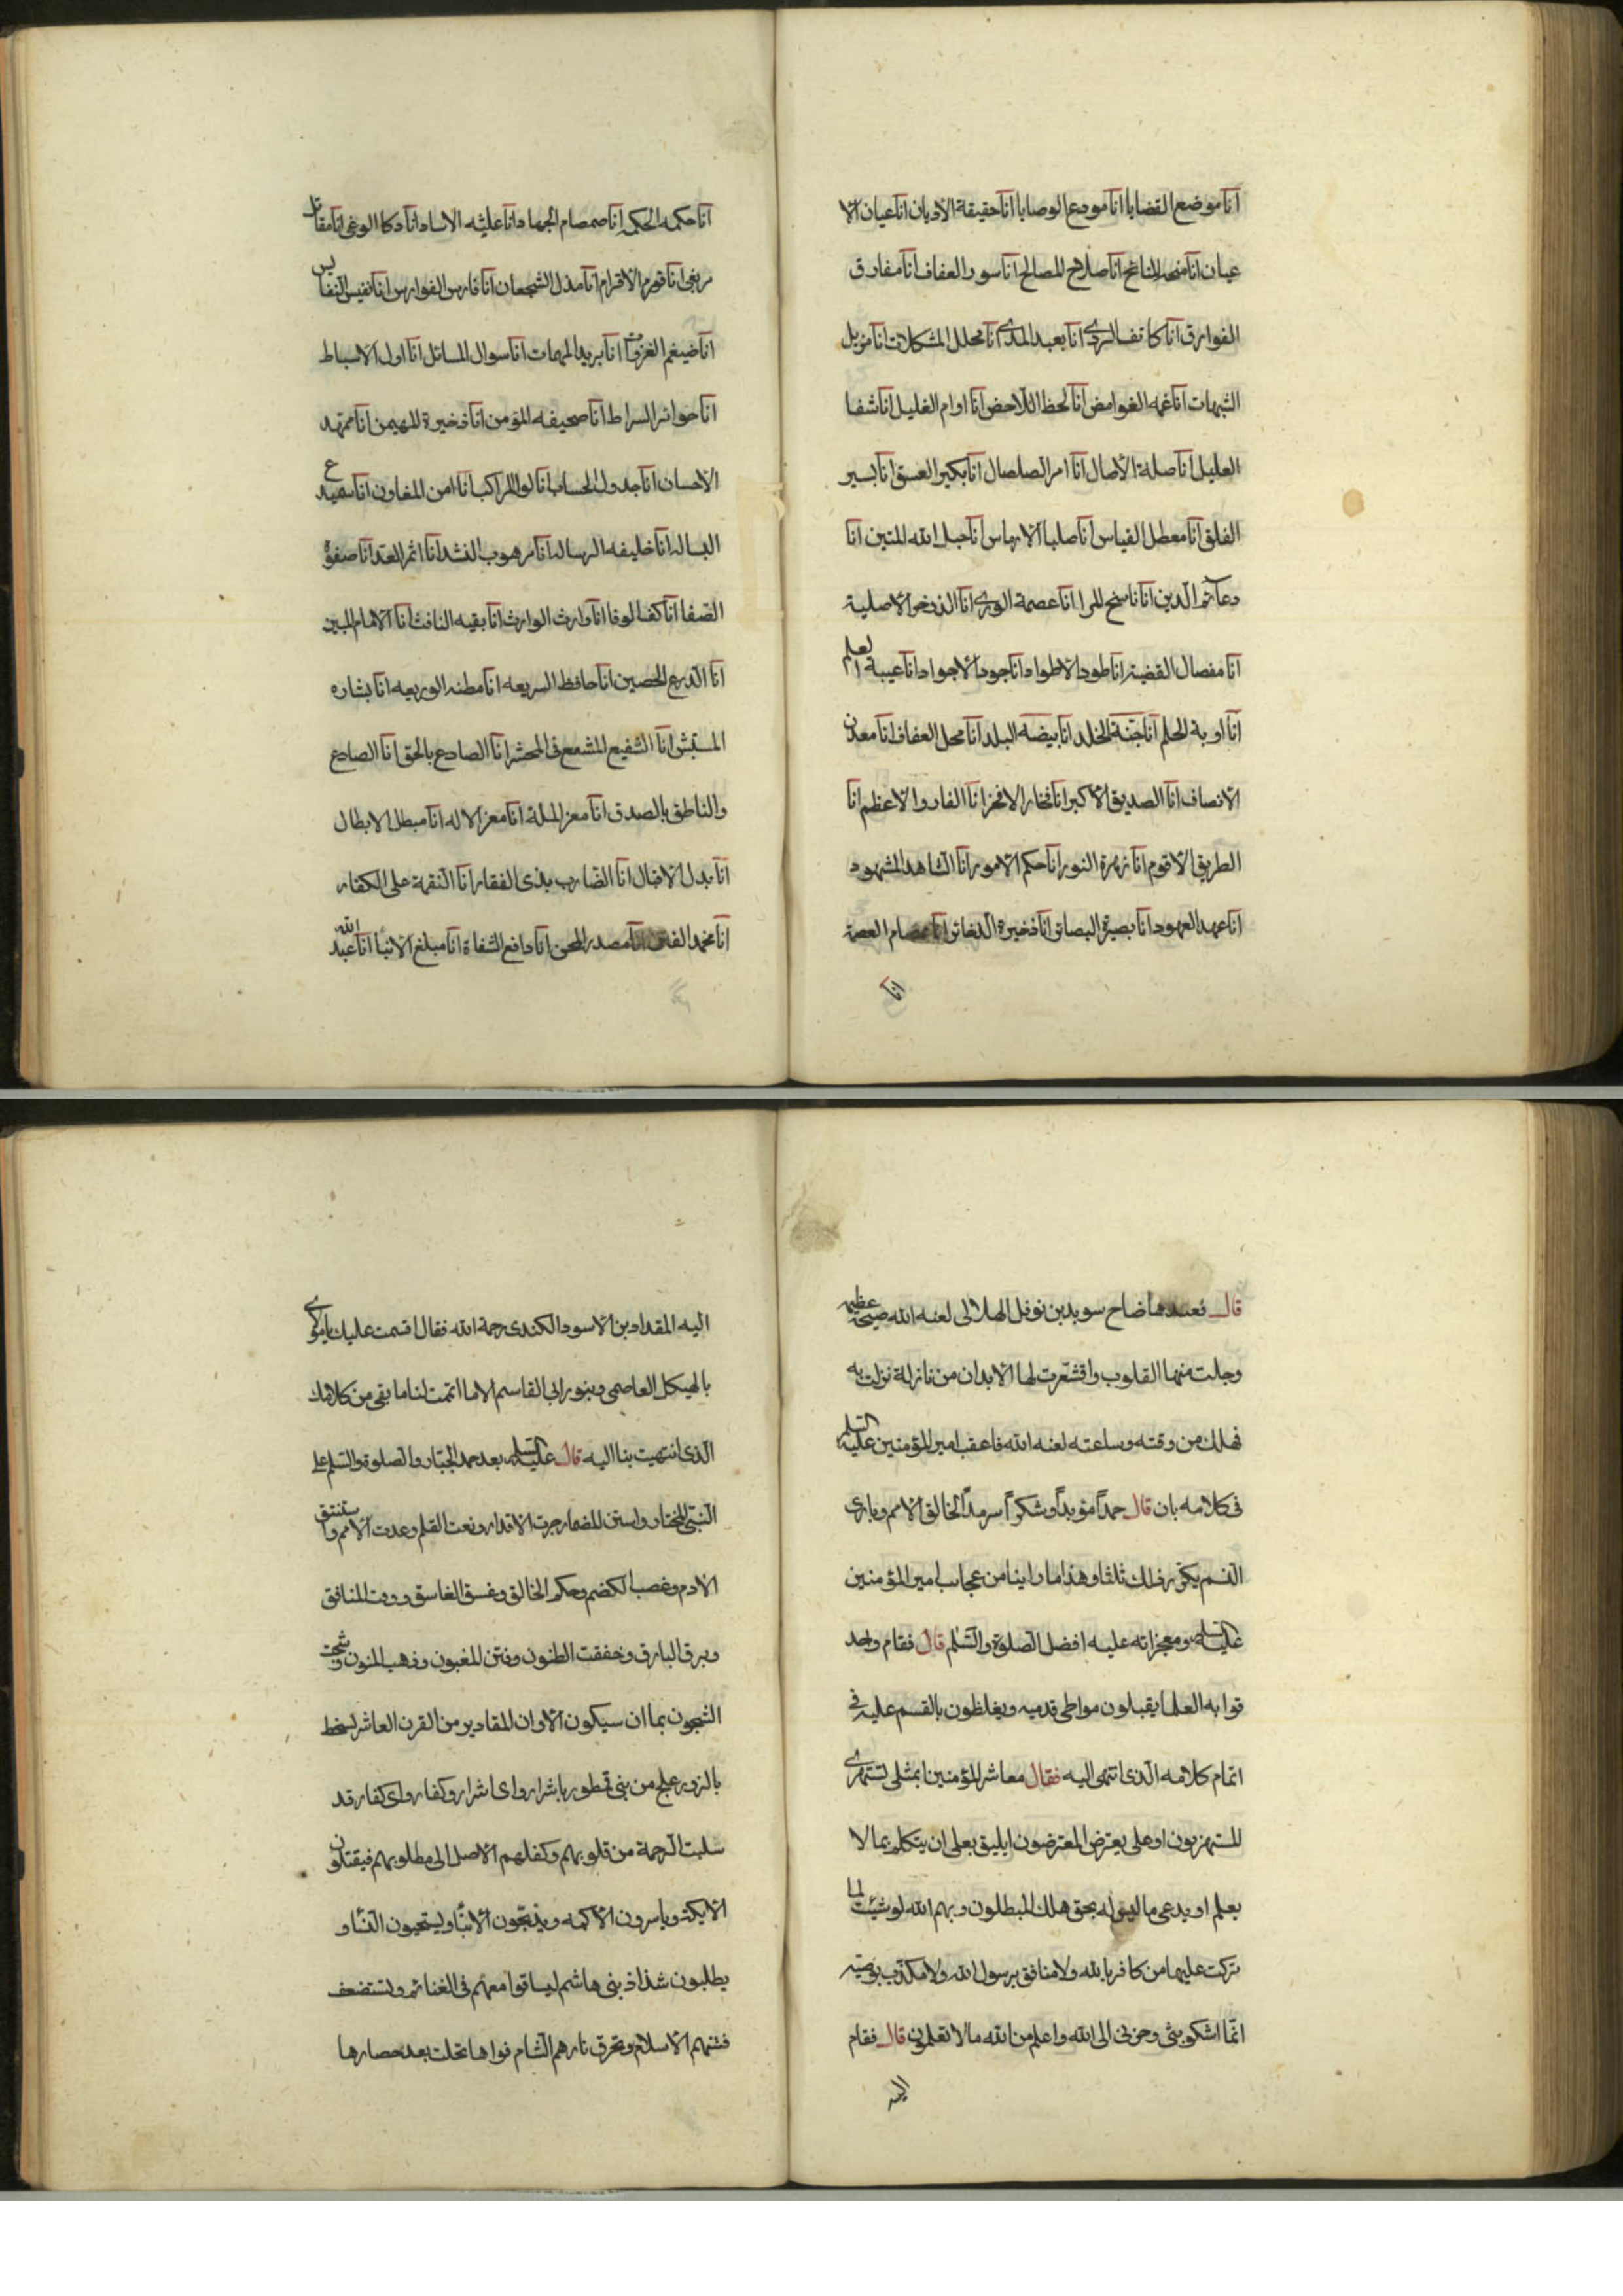 انا موضع القضايا انا مودع الوصايا انا حقيقة الاديان انا عيان الا
عيان انا منحة المنائح انا صلاح المصالح انا سور العفاف انا مفارق
الفوارق انا كاتف الردى انا بعيد المدى انا محلل المشكلات انا مزيل
الشبهات انا غمه الغوامض انا لحظ اللاحض انا اوام الغليل انا شفا
العليل انا صلة الاصال انا امر الصلصال انا بكير الغسق انا بسير
الفلق انا معطل القياس انا صليا الارماس انا حبل الله المتين انا
دعائم الدين انا ناسخ المرا انا عصمة الورى انا الذذخوا الاصلية
انا مفصال القضية انا طود الاطواد انا جود الاجواد انا عيبة العلم
انا اوبة الحلم انا جنة الخلد انا بيضة البلد انا محل العفاف انا معدن
الانصاف انا الصديق الاكبر انا فخار الافخر انا الفاروا الاعظم انا
الطريق الاقوم انا زهرة النور انا حكم الامور انا الشاهد المشهود
انا عهد العهود انا بصيرة البصائر انا ذخيرة الذخائر انا عصام العصمة
انا
انا حكمه الحكم انا صمصام الجهاد انا عليثه الاساد انا ذكا الوغى انا مقاتل
مربغى انا قورم الاقرام انا مذل الشجعان انا فارس الفوارس انا نفيس النفايس
انا ضيغم الغزوات انا بريد المهمات انا سوال المسائل انا اول الاسباط
انا حوائر السراط انا صحيفه المؤمن انا ذخيرة المهيمن انا ممتهد
الاحسان انا جدول الحساب انا لوا الراكب انا امن المفاوز انا سميدع
البساله انا خليفه الرساله انا مرهوب الشذا انا اثمر العدا انا صفوة
الصفا انا كفا لوفا انا وارث الوارث انا بقيه النافث انا الامام المبين
انا الدرع الحصين انا حافظ السريعه انا مطنه الوريعه انا بشاره
المستبشر انا الشفيع المشفع فى المحشر انا الصادع بالحق انا الصادع
والناطق بالصدق انا معز الملة انا معز الاله انا مبطل الابطال
انا بدل الاقبال انا الضارب بذى الفقار انا النقمة على الكفار
انا مخمد الفتن انا مصدر المحن انا دافع الشفاة انا مبلغ الانبأ انا عبد الله
قال فعندها ضاح سويد بن نوفل الهلالى لعنه الله صيحة عظيمه
وجلت منها القلوب واقشعرت لها الابدان من نازلة نزلت به
فهلك من وقته وساعته لعنه الله فاعقب امير المؤمنين عليه السلم
فى كلامه بان قال حمداً مؤبداً وشكراً سرمداً لخالق الامم وبارى
النسم يكرر ذلك ثلثا وهذا ما راينا من عجايب امير المؤمنين
عليه السلم ومعجزاته عليه افضل الصلوة والسلم قال فقام واحد
قوا به العلما يقبلون مواطى قدميه ويغلظون بالقسم عليه فى
اتمام كلامه الذى انتهى اليه فقال معاشر المؤمنين ابمثلى تستهزى
المستهزيون او على يعترض المعترضون ايليق بعلى ان يتكلم بما لا
يعلم او يدعى ما ليس له بحق هلك المبطلون و بهم الله لو شيئت لما
تركت عليها من كافر بالله ولا منافق برسول الله ولا مكذب بوصيه
انّما اشكو بثى وحزنى الى الله واعلم من الله ما لا تعلمون قال فقام
اليه
اليه المقداد بن الاسود الكندى رحمة الله فقال اقسمت عليك يا مولاى
بالهيكل العاصمى وبنور ابى القاسم الاما اتممت لنا ما بقى من كلامك
الذى انتهيت بنا اليه قال عليه السلم بعد حمد الجبار والصلوة والسلم على
النبى المختار واستن للضمار جرت الاقدار ونعت القلم وعدت الامم واستنتق
الادم وغصب الكضم وحكم الخالق وغسق الغاسق ووقت المنافق
وبرق البارق وخفقت الظنون وفتن المغبون وذهب المنون وشجت
الشجون بما ان سيكون الا وان المقادير من القرن العاشر لسخط
بالزور علج من بنى قنطور باشرار واى اشرار وكفار واى كفار قد
سلبت الرحمة من قلوبهم وكفلهم الاصل الى مطلوبهم فيقتلون
الايكة وياسرون الاكمه ويذبحون الابنا ويستحيون النسا و
يطلبون شذاذ بنى هاشم ليساقوا معهم فى الغنائم ولتستضعف
فتنهم الاسلام وتحرق نارهم الشام فواها تحلت بعد حصارها